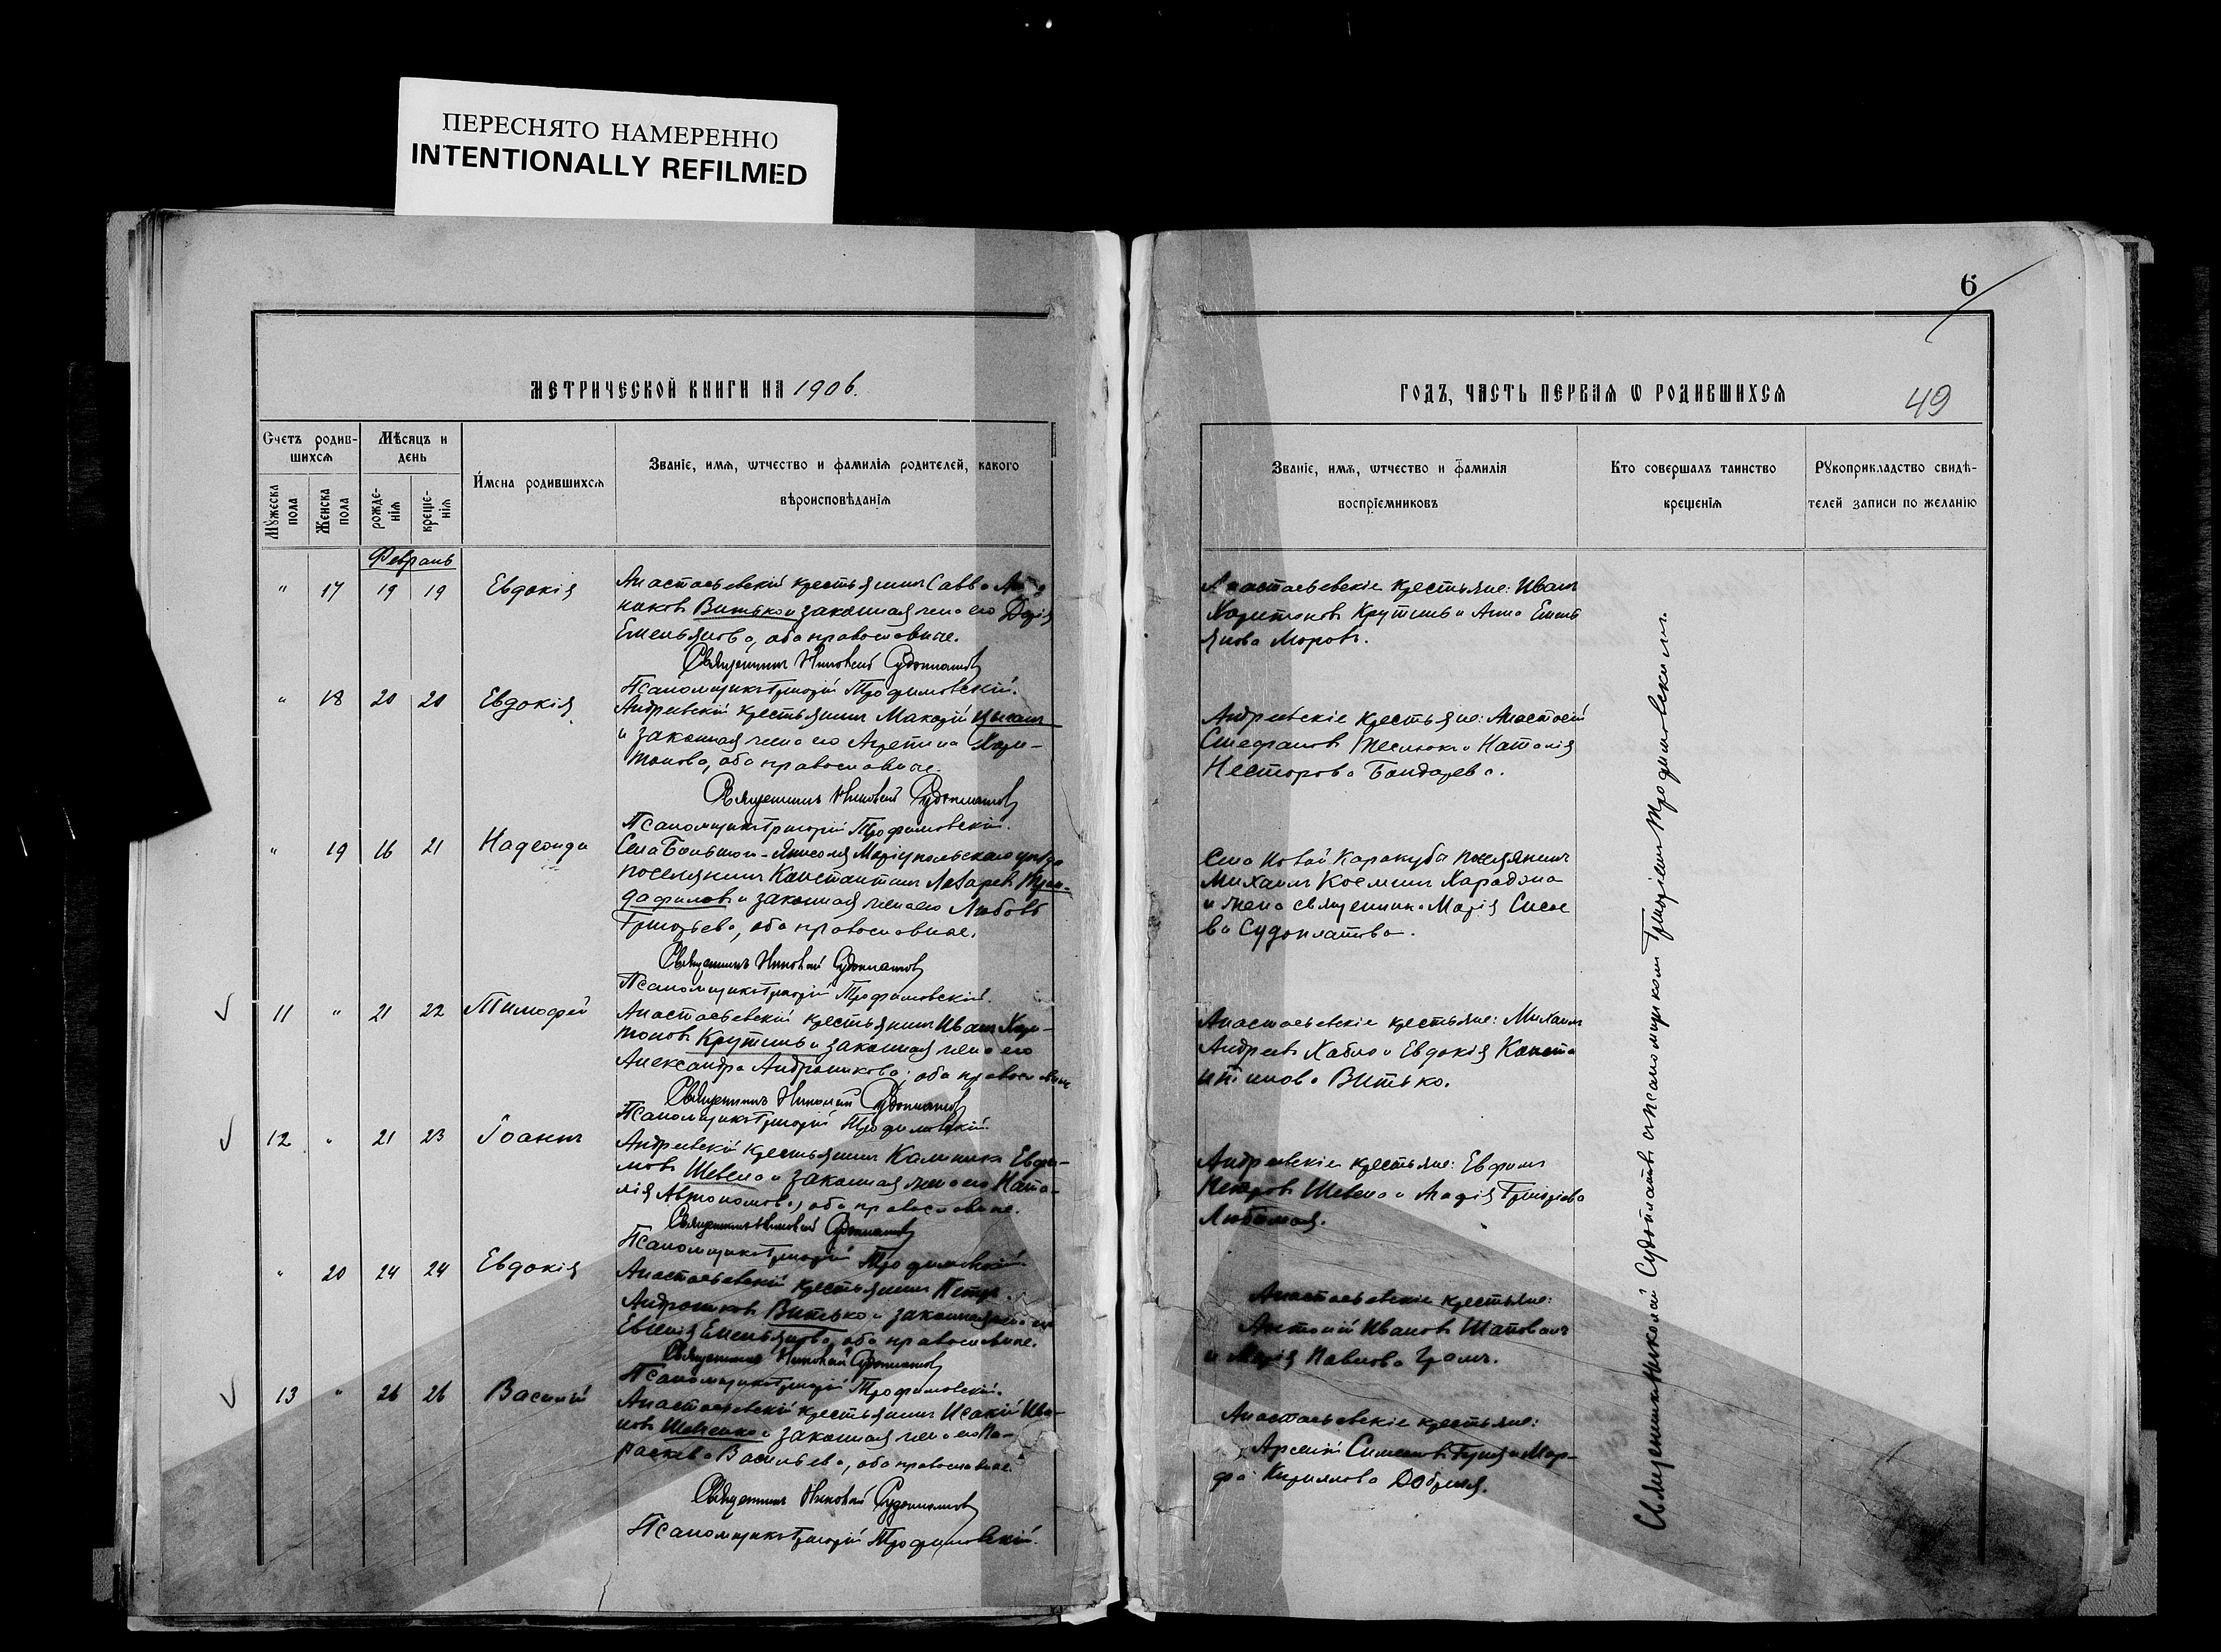 ПЕРЕСНЯТО НАМЕРЕННО
INTENTIONALLY REFILMED
6
МЕТРИЧЕСКОЙ КНИГИ НА 1906.
ГОДЪ, ЧАСТЬ ПЕРВАЯ Ѡ РОДИВШИХСЯ
49
Счетъ родив-
шихся
Мꙋжеска пола
Женска пола
Мѣсяцъ и
день
рожде-
нія
креще-
нія
Имена родившихся
Званіе, имя, ѿчество и фамилія родителей, какого
вѣроисповѣданія
Званіе, имя, ѿчество и фамилія
воспрїемниковъ
Кто совершалъ таинство
крещенія
Рꙋкоприкладство свидѣ-
телей записи по желанію
Февраль
" 17 19 19 Евдокія
Анастасьевскій крестьянинъ Савва
Витько и законная жена его Дарія
Емельянова, оба православные.
Священникъ Николай Судоплатовъ
Псаломщикъ Григорій Трофимовскій.
Анастасьевскіе крестьяне: Иванъ
Харитоновъ Крутинь и Анна Емель
янова Моровъ.
" 18 20 20 Евдокія
Андреевскій крестьянинъ Макарій Цыганъ
и законная жена его Агрепина Хари-
тонова, оба православные.
Священникъ Николай Судоплатовъ
Псаломщикъ Григорій Трофимовскій.
Андреевскіе крестьяне: Анастасій
Стефановъ Теслюкъ и Наталія
Несторова Бондарева.
" 19 16 21 Надежда
Села Большой-Янисоля Маріупольскаго уѣзда
поселянинъ Константинъ Лазаревъ Тран-
дафиловъ и законная жена его Любовь
Григорьева, оба православные.
Священникъ Николай Судоплатовъ
Псаломщикъ Григорій Трофимовскій.
Села Новой Каракуба поселянинъ
Михаилъ Косминъ Хараджа
и жена священника Марія Сисое
ва Судоплатова.
11 " 21 22 Тимофей
Анастасьевскій крестьянинъ Иванъ Хари-
тоновъ Крутинь и законная жена его
Александра Андроникова, оба православные
Священникъ Николай Судоплатовъ
Псаломщикъ Григорій Трофимовскій.
Анастасьевскіе крестьяне: Михаилъ
Андреевъ Хабло и Евдокія Конста
нтинова Витько.
12 " 21 23 Іоаннъ
Андреевскій крестьянинъ Калиникъ Евфи-
мовъ Шевела и законная жена его Ната-
лія Автономова, оба православные.
Священникъ Николай Судоплатовъ
Псаломщикъ Григорій Трофимовскій
Андреевскіе крестьяне: Евфимъ
Петровъ Шевела и Агафія Григорьева
Любимая.
" 20 24 24 Евдокія
Анастасьевскій крестьянинъ Петръ
Андрониковъ Витько и законная жена его
Евгенія Емельянова, оба православные.
Священникъ Николай Судоплатовъ
Псаломщикъ Григорій Трофимовскій.
Анастасьевскіе крестьяне:
Антоній Ивановъ Шаповалъ
и Марія Павлова
13 " 26 26 Василій
Анастасьевскій крестьянинъ Исакій Ива-
новъ Шевченко и законная жена его Па-
раскева Васильева, оба православные.
Священникъ Николай Судоплатовъ
Псаломщикъ Григорій Трофимовскій.
Анастасьевскіе крестьяне:
Арсеній Симеоновъ и Мар-
фа Кириллова Добрыя.
Священникъ Николай Судоплатовъ съ псаломщикомъ Григоріемъ Трофимовскимъ.